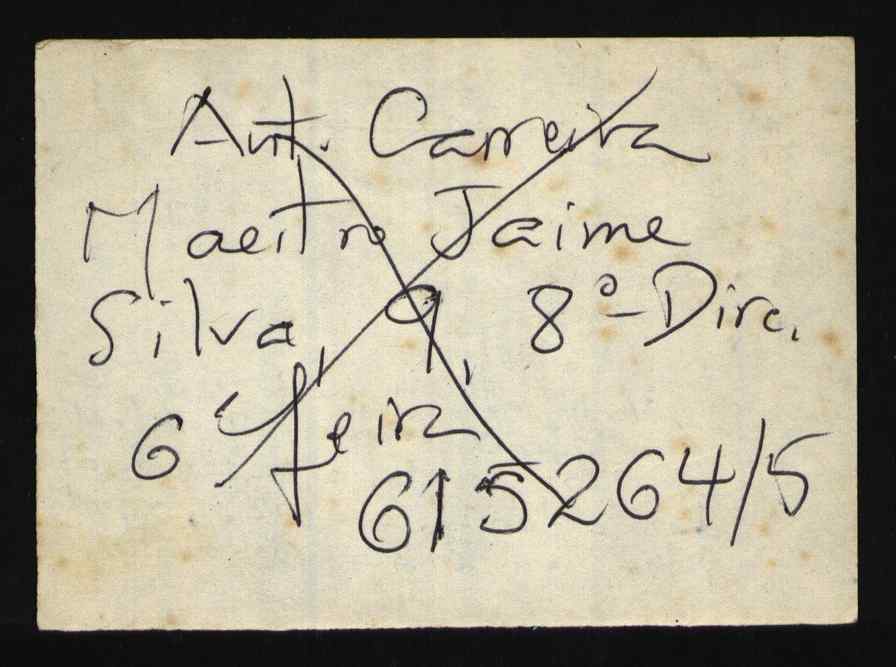 Ant. Carreira
Maestro Jaime
Silva, 9, 8º-Dirc.
6ª feira
615264/5